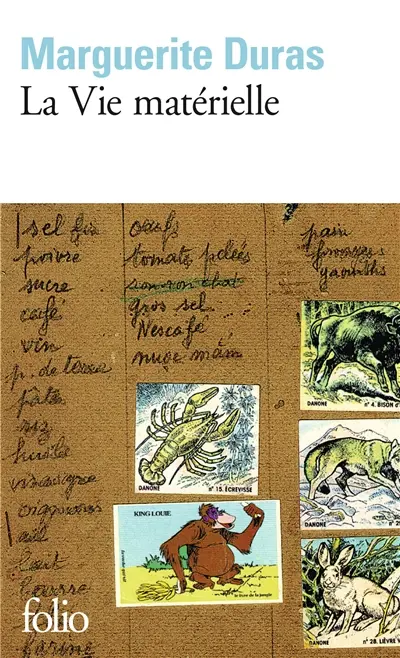 Marguerite Duras
La Vie matérielle
sel fin
poivre
sucre
café
vin
p. de terre
pâtes
riz
huile
vinaigre
oignons
ail
lait
beurre
farine
oeufs
tomat pelées
ron ron chat
gros sel
Nescafé
nuoc mâm
pain
fromages
yaourths
DANONE
n° 15. ÉCREVISSE
KING LOUIE
le livre de la jungle
DANONE
n° 4. BISON
DANONE
n° 28. LIÈVRE
folio